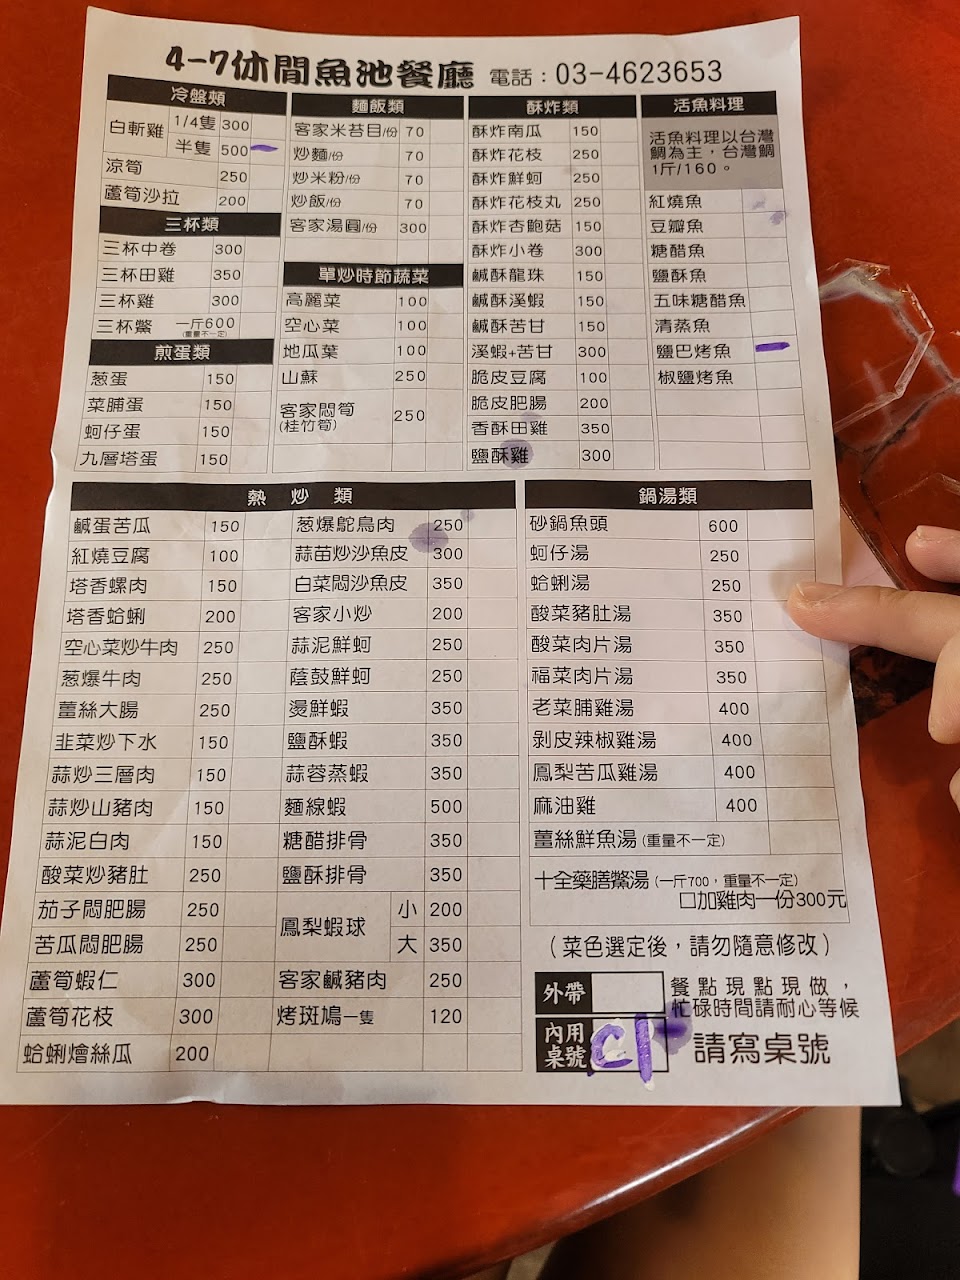 4-7休閒魚池餐廳 電話：03-4623653
冷盤類
白斬雞 1/4隻 300
半隻 500
涼筍 250
蘆筍沙拉 200
三杯類
三杯中卷 300
三杯田雞 350
三杯雞 300
三杯鱉 一斤600
(重量不一定)
煎蛋類
葱蛋 150
菜脯蛋 150
蚵仔蛋 150
九層塔蛋 150
麵飯類
客家米苔目/份 70
炒麵/份 70
炒米粉/份 70
炒飯/份 70
客家湯圓/份 300
單炒時節蔬菜
高麗菜 100
空心菜 100
地瓜葉 100
山蘇 250
客家悶筍 250
(桂竹筍)
酥炸類
酥炸南瓜 150
酥炸花枝 250
酥炸鮮蚵 250
酥炸花枝丸 250
酥炸杏鮑菇 150
酥炸小卷 300
鹹酥龍珠 150
鹹酥溪蝦 150
鹹酥苦甘 150
溪蝦+苦甘 300
脆皮豆腐 100
脆皮肥腸 200
香酥田雞 350
鹽酥雞 300
活魚料理
活魚料理以台灣
鯛為主，台灣鯛
1斤/160。
紅燒魚
豆瓣魚
糖醋魚
鹽酥魚
五味糖醋魚
清蒸魚
鹽巴烤魚
椒鹽烤魚
熱炒類
鹹蛋苦瓜 150
紅燒豆腐 100
塔香螺肉 150
塔香蛤蜊 200
空心菜炒牛肉 250
葱爆牛肉 250
薑絲大腸 250
韭菜炒下水 150
蒜炒三層肉 150
蒜炒山豬肉 150
蒜泥白肉 150
酸菜炒豬肚 250
茄子悶肥腸 250
苦瓜悶肥腸 250
蘆筍蝦仁 300
蘆筍花枝 300
蛤蜊燴絲瓜 200
葱爆鴕鳥肉 250
蒜苗炒沙魚皮 300
白菜悶沙魚皮 350
客家小炒 200
蒜泥鮮蚵 250
蔭鼓鮮蚵 250
燙鮮蝦 350
鹽酥蝦 350
蒜蓉蒸蝦 350
麵線蝦 500
糖醋排骨 350
鹽酥排骨 350
鳳梨蝦球 小 200
大 350
客家鹹豬肉 250
烤斑鳩一隻 120
鍋湯類
砂鍋魚頭 600
蚵仔湯 250
蛤蜊湯 250
酸菜豬肚湯 350
酸菜肉片湯 350
福菜肉片湯 350
老菜脯雞湯 400
剝皮辣椒雞湯 400
鳳梨苦瓜雞湯 400
麻油雞 400
薑絲鮮魚湯 (重量不一定)
十全藥膳鱉湯 (一斤700，重量不一定)
□加雞肉一份300元
（菜色選定後，請勿隨意修改）
外帶
餐點現點現做，
忙碌時間請耐心等候
內用
桌號 C1
請寫桌號